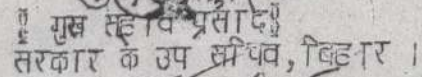 गुख सहाव प्रसाद
सरकार के उप सचिव, बिहार ।